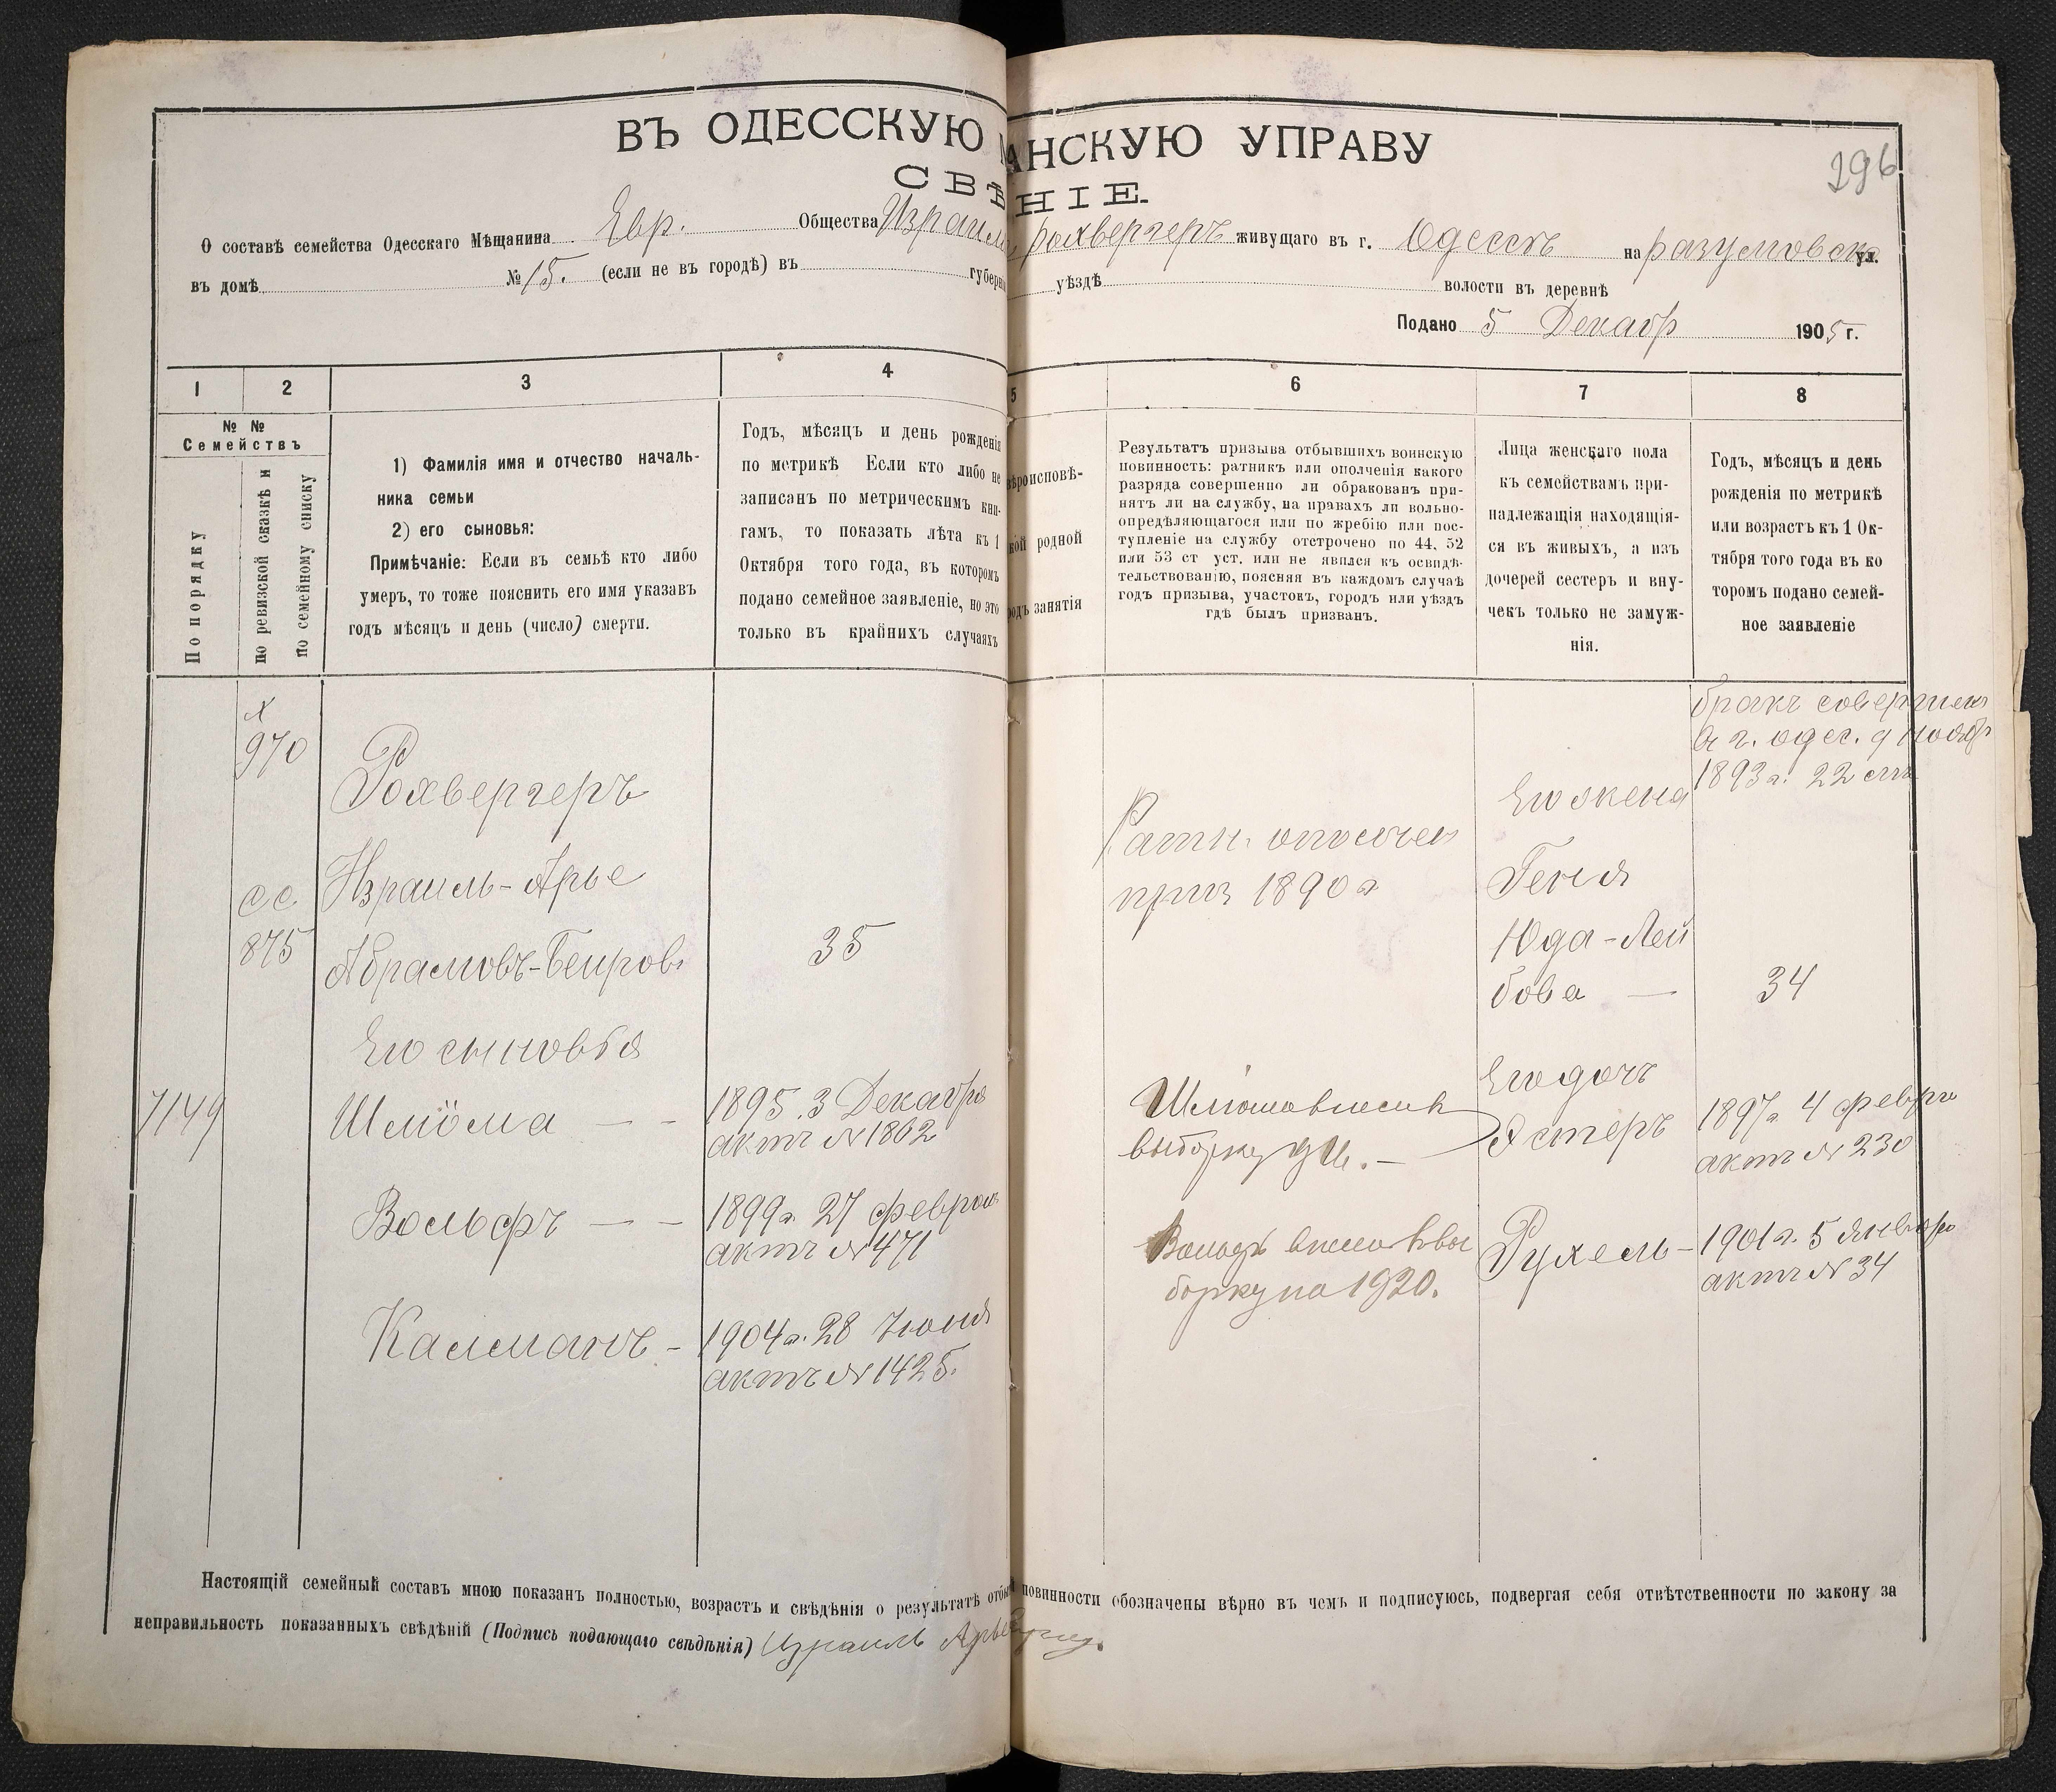 296
ВЪ ОДЕССКУЮ АНСКУЮ УПРАВУ
СВѢ НІЕ.
О составѣ семейства Одесскаго Мѣщанина Евр. Общества Израиль Рохвергеръ живущаго въ г. Одессѣ на Разумовско ул.
въ домѣ № 15. (если не въ городѣ) въ губерні уѣздѣ волости въ деревнѣ
Подано 5 Декабр 1905 г.
1 2 3 4 5 6 7 8
№ №
Семействъ
По порядку
По ревизской сказкѣ и
по семейному списку
1) Фамилія имя и отчество началь-
ника семьи
2) его сыновья:
Примѣчаніе: Если въ семьѣ кто либо
умеръ, то тоже пояснить его имя указавъ
годъ мѣсяцъ и день (число) смерти.
Годъ, мѣсяцъ и день рожденія
по метрикѣ Если кто либо не
записанъ по метрическимъ кни-
гамъ, то показать лѣта къ 1
Октября того года, въ которомъ
подано семейное заявленіе, но это
только въ крайнихъ случаяхъ
вѣроисповѣ-
кой родной
родъ занятія
Результатъ призыва отбывшихъ воинскую
повинность: ратникъ или ополченія какого
разряда совершенно ли обракованъ при-
нятъ ли на службу, на правахъ ли вольно-
опредѣляющагося или по жребію или пос-
тупленіе на службу отстрочено по 44, 52
или 53 ст уст. или не явился къ освидѣ-
тельствованію, поясняя въ каждомъ случаѣ
годъ призыва, участокъ, городъ или уѣздъ
гдѣ былъ призванъ.
Лица женскаго пола
къ семействамъ при-
надлежащія находящія-
ся въ живыхъ, а изъ
дочерей сестеръ и вну-
чекъ только не замуж-
нія.
Годъ, мѣсяцъ и день
рожденія по метрикѣ
или возрастъ къ 1 Ок-
тября того года въ ко
торомъ подано семей-
ное заявленіе
970
Рохвергеръ
Израиль-Арье
сс
875
Абрамовъ-Беировъ
35
Его сыновья
7149
Шлёма — —
1895. 3 Декабря
актъ № 1802
Вольфъ — —
1899г. 27 феврал
актъ № 471
Калманъ —
1904г. 28 Іюня
актъ № 1425.
Ратн. ополчен
приз 1890 г
Шлёма внесенъ
выборку
Вольфъ внесен въ вы
борку на 1920.
Его жена
Геня
Юда-Лей
бова —
Его дочь
Эстеръ
Рухель —
бракъ совершен
въ г. одес. 9 Нояб
1893 г. 22
34
1897г. 4 февр
актъ № 230
1901г. 5 Январ
актъ № 34
Настоящій семейный составъ мною показанъ полностью, возрастъ и свѣдѣнія о результатѣ отбыт повинности обозначены вѣрно въ чемъ и подписуюсь, подвергая себя отвѣтственности по закону за
неправильность показанныхъ свѣдѣній (Подпись подающаго свѣдѣнія) Израиль Арье